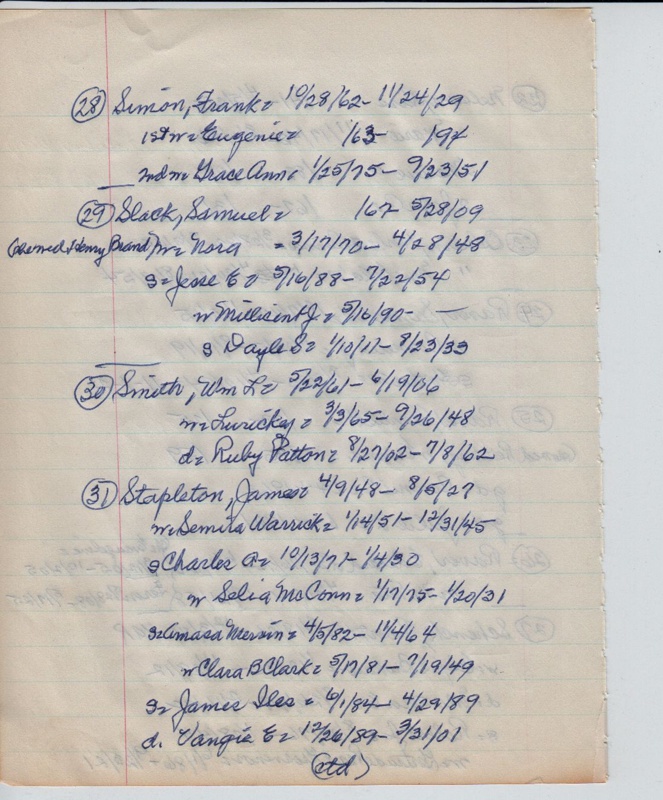 28 Simon, Frank = 10/28/62 - 11/24/29
1st w = Eugenie = 1/63 - 1/94
2nd w = Grace Ann = 1/25/75 - 9/23/51
29 Slack, Samuel = 167 - 5/28/09
Henry Brand) w = Nora = 3/17/70 - 4/28/48
s = Jesse E = 5/16/88 - 7/22/54
w Millicent J. = 5/16/90 - —
s Dayle S = 1/10/11 - 8/23/33
30 Smith, Wm L = 5/22/61 - 6/19/06
w = = 3/3/65 - 9/26/48
d = Ruby Patton = 8/27/02 - 7/8/62
31 Stapleton, James = 4/9/48 - 8/5/27
w = Semira Warrick = 1/14/51 - 12/31/45
s Charles = 10/13/71 - 1/4/30
w Selia McConn = 1/17/75 - 1/20/31
s = Amasa Mervin = 4/5/82 - 11/4/64
w Clara B Clark = 5/17/81 - 7/19/49
s = James Iles = 6/1/84 - 4/29/89
d. Vangie E = 12/26/89 - 3/31/01
(ctd)